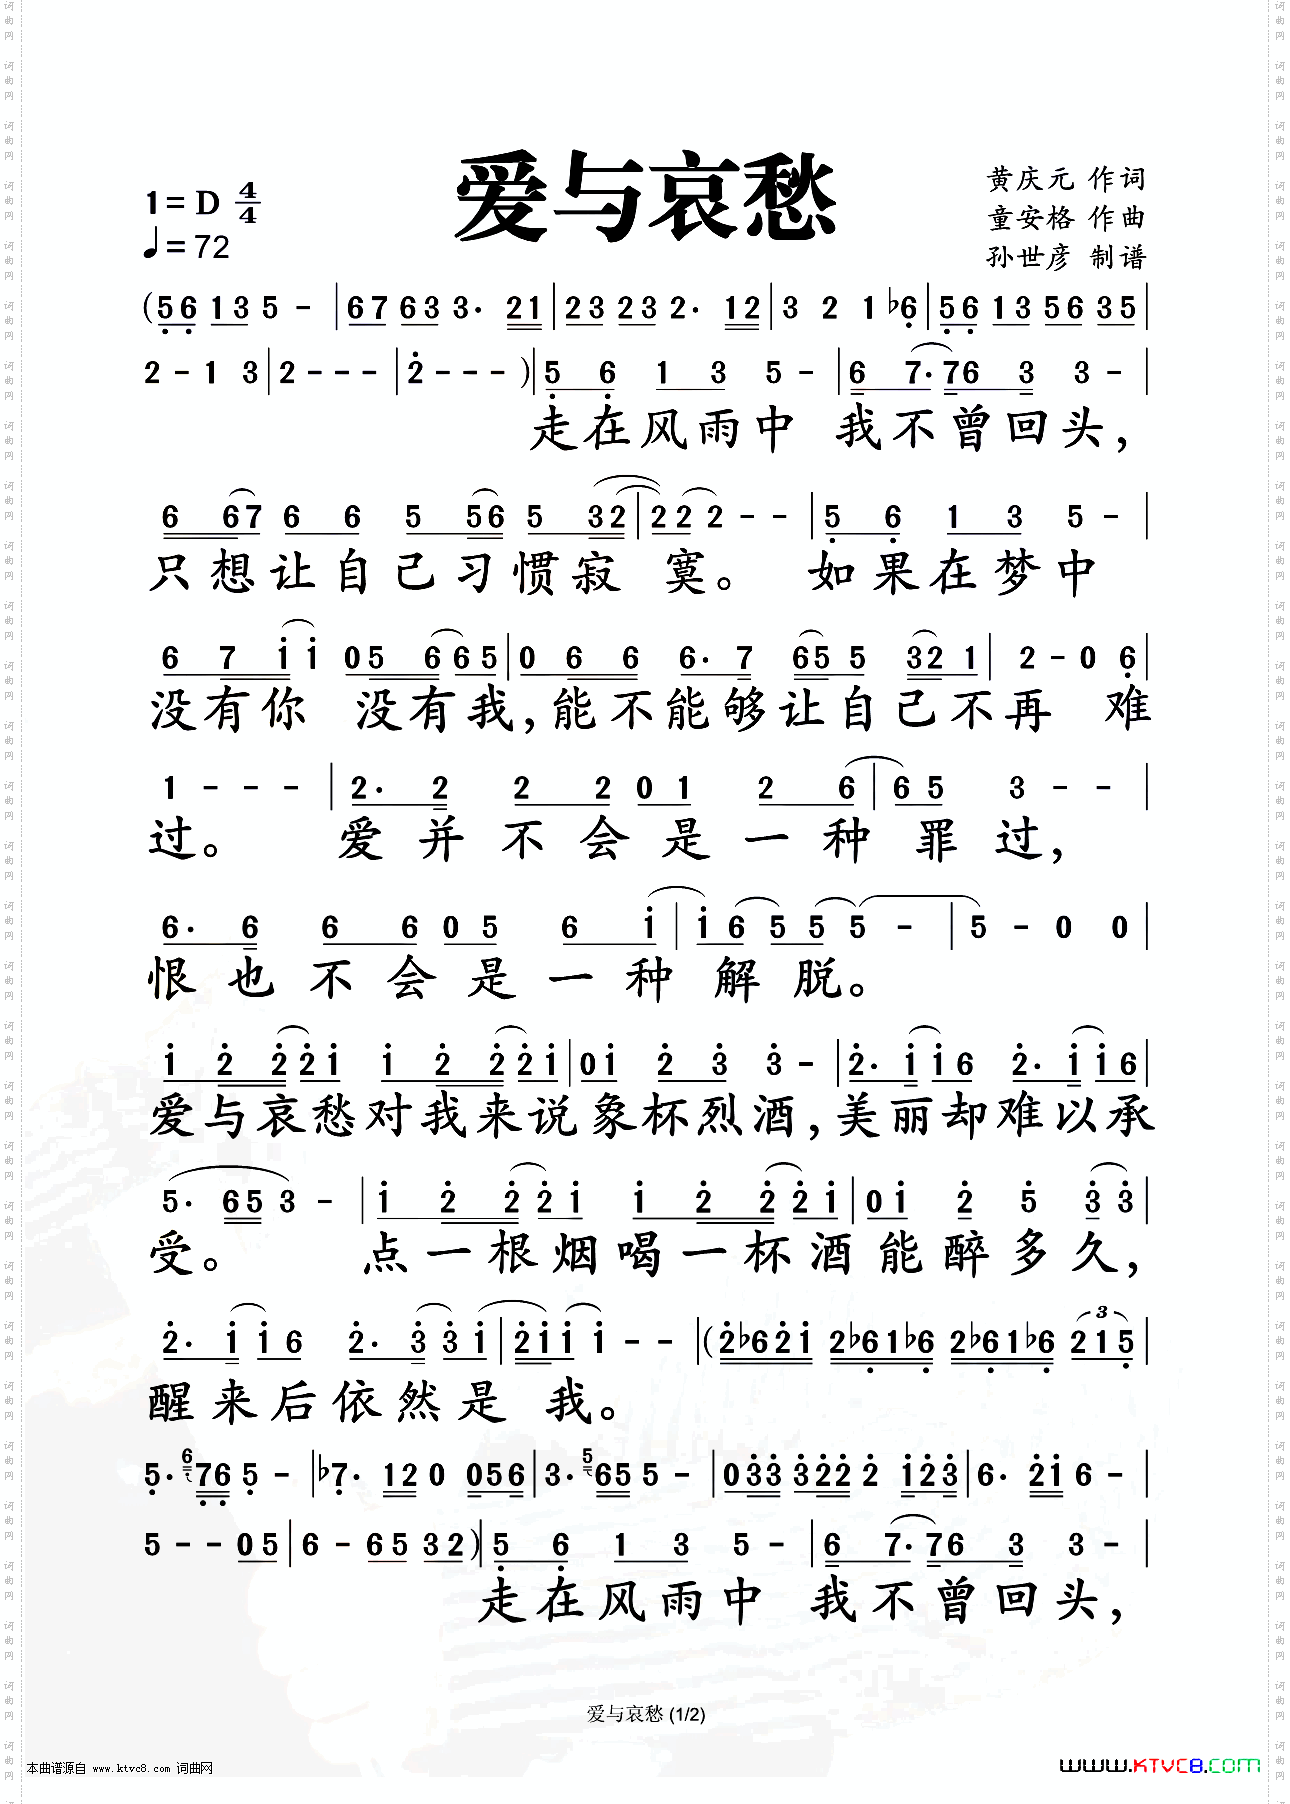 爱与哀愁
1= D 4/4
♩= 72
黄庆元 作词
童安格 作曲
孙世彦 制谱
(56 13 5 - | 67 63 3· 21 | 23 23 2· 12 | 3 2 1 ♭6 | 56 13 56 35 |
2 - 1 3 | 2 - - - | 2 - - - ) | 5 6 1 3 5 - | 6 7· 76 3 3 - |
走在风雨中 我不曾回头，
6 67 6 6 5 56 5 32 | 2 2 2 - - | 5 6 1 3 5 - |
只想让自己习惯寂 寞。 如果在梦中
6 7 i i 05 6 65 | 0 6 6 6· 7 65 5 32 1 | 2 - 0 6 |
没有你 没有我，能不能够让自己不再 难
1 - - - | 2· 2 2 2 0 1 2 6 | 6 5 3 - - |
过。 爱并不会是一种罪过，
6· 6 6 6 0 5 6 i | i 6 5 5 5 - | 5 - 0 0 |
恨也不会是一种解脱。
i 2 2 2 i i 2 2 2 i | 0 i 2 3 3 - | 2· i i 6 2· i i 6 |
爱与哀愁对我来说象杯烈酒，美丽却难以承
5· 65 3 - | i 2 2 2 i i 2 2 2 i | 0 i 2 5 3 3 |
受。 点一根烟喝一杯酒能醉多久，
2· i i 6 2· 3 3 i | 2 i i i - - | (2♭62i 2♭61♭6 2♭61♭6 215 |
3
醒来后依然是 我。
5· 6 76 5 - | ♭7· 12 0 056 | 3· 5 65 5 - | 033 322 2 i23 | 6· 2i 6 - |
5 - - 05 | 6 - 65 32 ) | 5 6 1 3 5 - | 6 7· 76 3 3 - |
走在风雨中 我不曾回头，
爱与哀愁 (1/2)
本曲谱源自 www.ktvc8.com 词曲网
WWW.KTVC8.COM